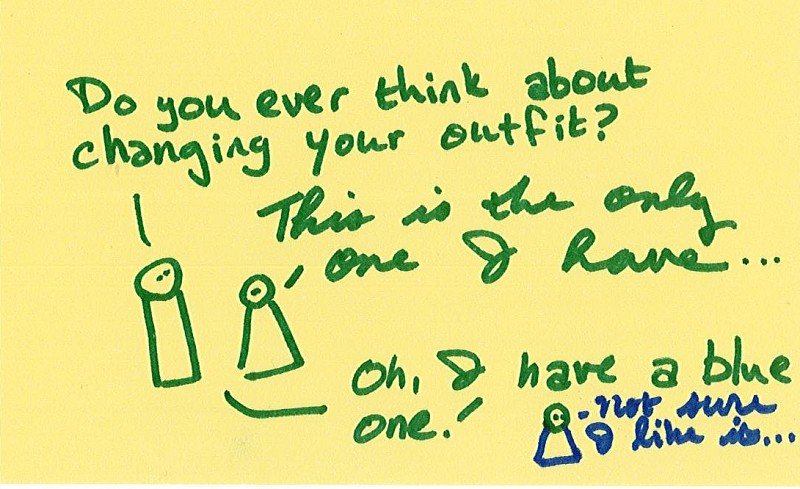 Do you ever think about
changing your outfit?
This is the only
one I have...
Oh, I have a blue
one.
not sure
I like it...